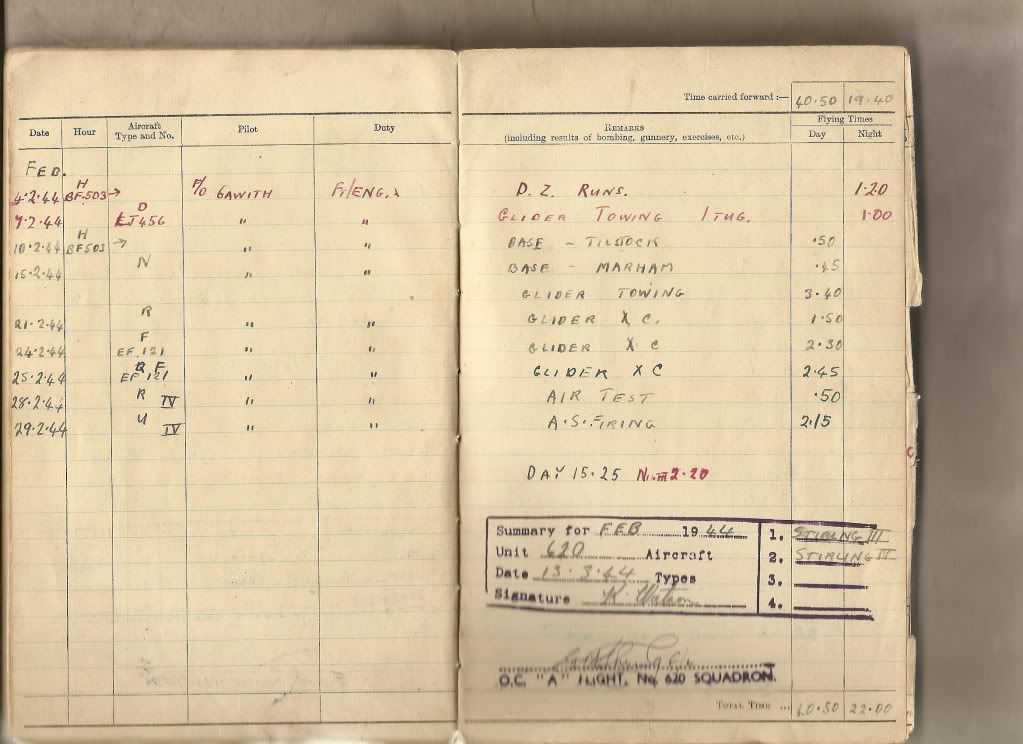 Time carried forward :— 40·50 19·40
Date Hour Aircraft Type and No. Pilot Duty REMARKS (including results of bombing, gunnery, exercises, etc.) Flying Times Day Night
FEB.
4·2·44 H BF503 → F/O GAWITH F/ENG. D.Z. RUNS. 1·20
7·2·44 D LJ456 " " GLIDER TOWING 1 TUG. 1·00
10·2·44 H BF503 → " " BASE - TILSTOCK ·50
15·2·44 N " " BASE - MARHAM ·45
GLIDER TOWING 3·40
21·2·44 R " " GLIDER X C. 1·50
24·2·44 F EF 121 " " GLIDER X C 2·30
25·2·44 F EF 121 " " GLIDER X C 2·45
28·2·44 R IV " " AIR TEST ·50
29·2·44 U IV " " A.S. FIRING 2·15
DAY 15·25 2·20
Summary for FEB 1944 1. STIRLING III
Unit 620 Aircraft 2. STIRLING IV
Date 13·3·44 Types 3.
Signature K. Watson 4.
O.C. "A" FLIGHT, No. 620 SQUADRON.
TOTAL TIME ... 60·50 22·00